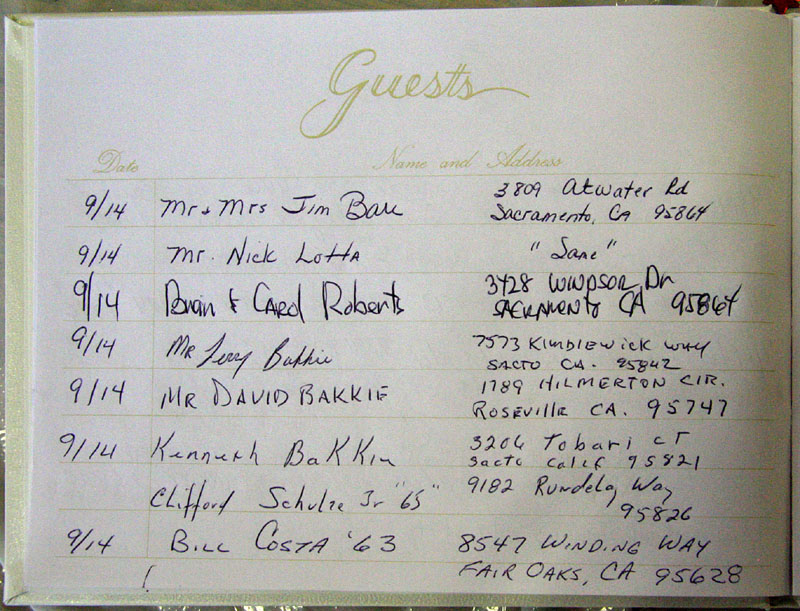 Guests
Date Name and Address
9/14 Mr & Mrs Jim 3809 Atwater Rd
Sacramento, CA 95864
9/14 Mr. Nick Lotta "Same"
9/14 & Carol Roberts 3428 WINDSOR Dr
SACRAMENTO CA 95864
9/14 Mr Bakkie 7573 WAY
SACTO CA. 95842
9/14 MR DAVID BAKKIE 1789 HILMERTON CIR.
ROSEVILLE CA. 95747
9/14 Kenneth Bakkie 3206 Tobari CT
Sacto Calif 95821
Clifford Schulze Jr "65" 9182 Way
95826
9/14 BILL COSTA '63 8547 WINDING WAY
FAIR OAKS, CA 95628